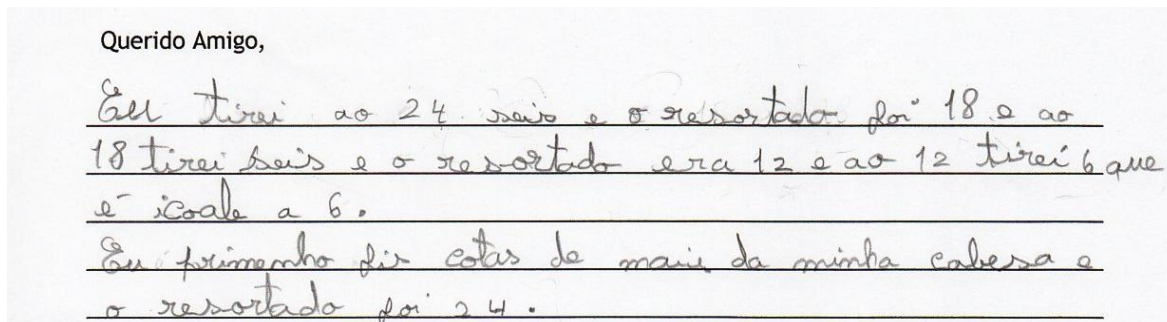 Querido Amigo,
Eu tirei ao 24 seis e o resortado foi 18 e ao
18 tirei seis e o resortado era 12 e ao 12 tirei 6 que
é icoale a 6.
Eu primenho fis cotas de mais da minha cabesa e
o resortado foi 24.